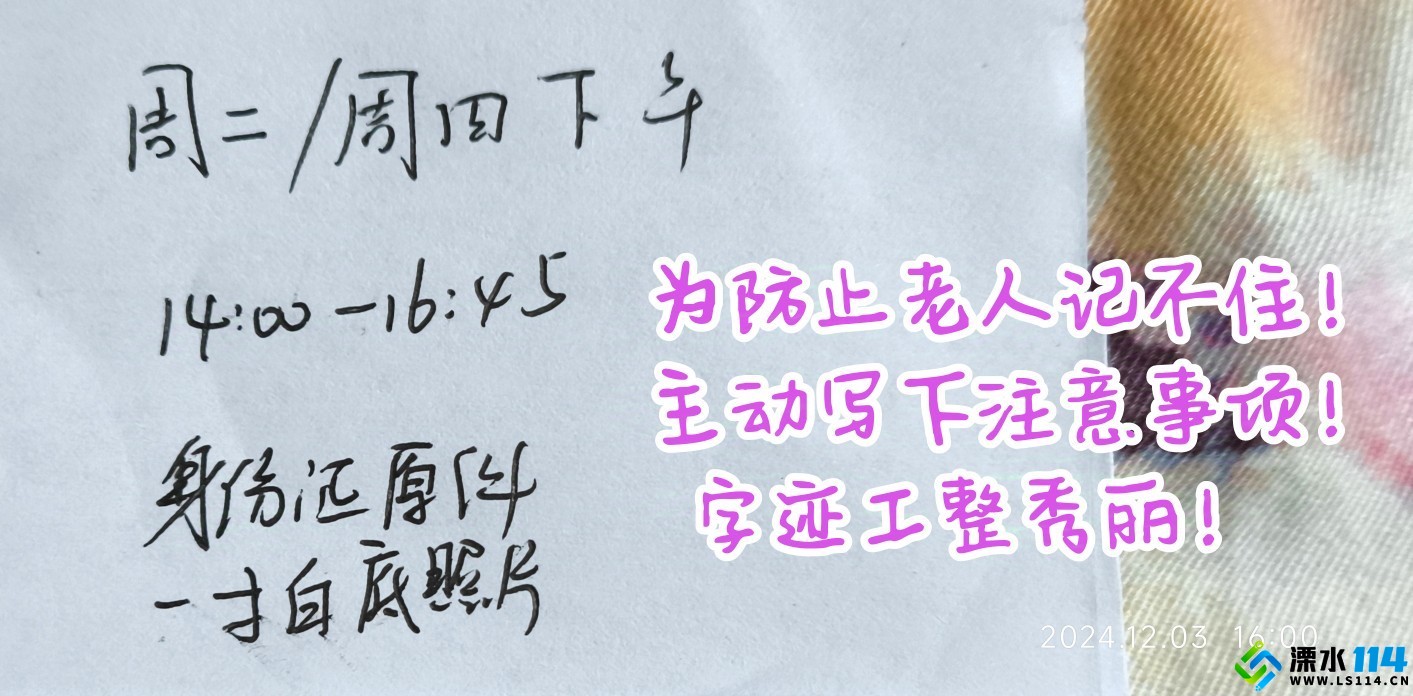 周二/周四下午
14:00-16:45
身份证原件
一寸白底照片
为防止老人记不住!
主动写下注意事项!
字迹工整秀丽!
2024.12.03 16:00
溧水114
WWW.LS114.CN